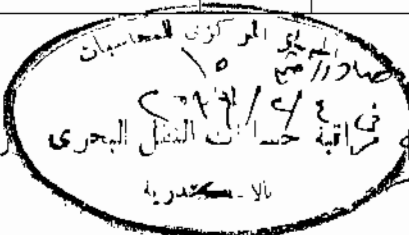 الجهاز المركزى للمحاسبات
صادر رقم ١٥
فى
مراقبة حسابات النقل البحرى
بالاسكندرية